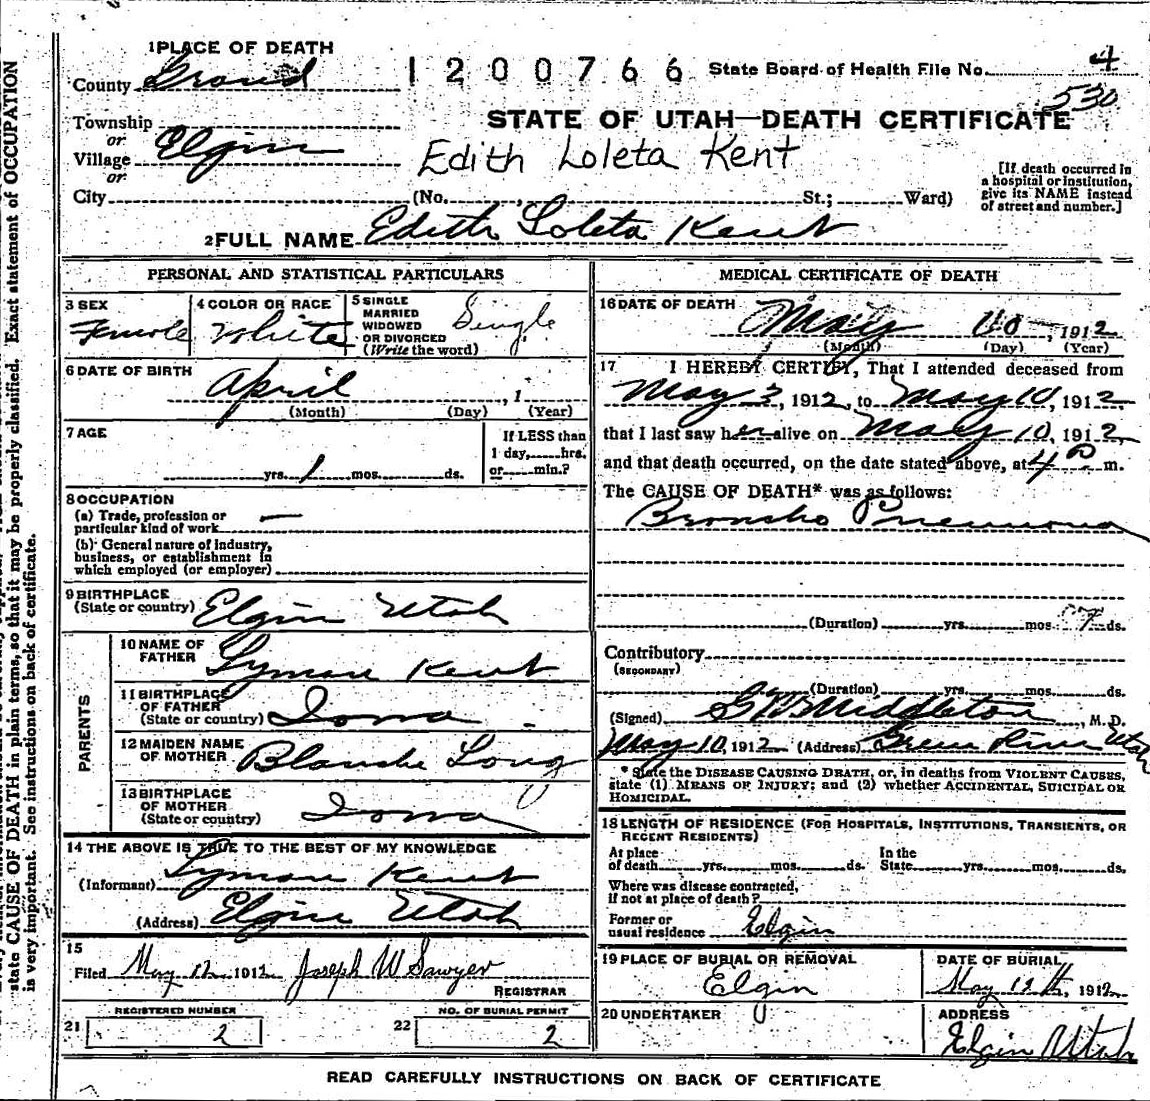 state CAUSE OF DEATH in plain terms, so that it may be properly classified. Exact statement of OCCUPATION
is very important. See instructions on back of certificate.
1 PLACE OF DEATH
County Grand
1200766 State Board of Health File No. 4
530
Township
or
Village Elgin
or
STATE OF UTAH—DEATH CERTIFICATE
Edith Loleta Kent
City (No. , St.; Ward)
[If death occurred in
a hospital or institution,
give its NAME instead
of street and number.]
2 FULL NAME Edith Loleta Kent
PERSONAL AND STATISTICAL PARTICULARS
3 SEX
Female
4 COLOR OR RACE
White
5 SINGLE
MARRIED
WIDOWED
OR DIVORCED
(Write the word)
Single
6 DATE OF BIRTH
April , 1
(Month) (Day) (Year)
7 AGE
yrs. 1 mos. ds.
If LESS than
1 day, hrs.
or min.?
8 OCCUPATION
(a) Trade, profession or
particular kind of work —
(b) General nature of industry,
business, or establishment in
which employed (or employer)
9 BIRTHPLACE
(State or country) Elgin Utah
PARENTS
10 NAME OF
FATHER Lyman Kent
11 BIRTHPLACE
OF FATHER
(State or country) Iowa
12 MAIDEN NAME
OF MOTHER Blanche Long
13 BIRTHPLACE
OF MOTHER
(State or country) Iowa
14 THE ABOVE IS TRUE TO THE BEST OF MY KNOWLEDGE
(Informant) Lyman Kent
(Address) Elgin Utah
15
Filed May 12 1912 Joseph W Sawyer
REGISTRAR
21 REGISTERED NUMBER
2
22 NO. OF BURIAL PERMIT
2
MEDICAL CERTIFICATE OF DEATH
16 DATE OF DEATH
May 10, 1912
(Month) (Day) (Year)
17 I HEREBY CERTIFY, That I attended deceased from
May 3, 1912, to May 10, 1912,
that I last saw her alive on May 10, 1912,
and that death occurred, on the date stated above, at 4 P m.
The CAUSE OF DEATH* was as follows:
Broncho Pneumona
(Duration) yrs. mos. 7 ds.
Contributory
(SECONDARY)
(Duration) yrs. mos. ds.
(Signed) G W Middleton, M. D.
May 10, 1912 (Address) Green River Utah
* State the DISEASE CAUSING DEATH, or, in deaths from VIOLENT CAUSES,
state (1) MEANS OF INJURY; and (2) whether ACCIDENTAL, SUICIDAL OR
HOMICIDAL.
18 LENGTH OF RESIDENCE (FOR HOSPITALS, INSTITUTIONS, TRANSIENTS, OR
RECENT RESIDENTS)
At place
of death yrs. mos. ds.
In the
State yrs. mos. ds.
Where was disease contracted,
if not at place of death?
Former or
usual residence Elgin
19 PLACE OF BURIAL OR REMOVAL
Elgin
DATE OF BURIAL
May 12th, 1912
20 UNDERTAKER
ADDRESS
Elgin Utah
READ CAREFULLY INSTRUCTIONS ON BACK OF CERTIFICATE